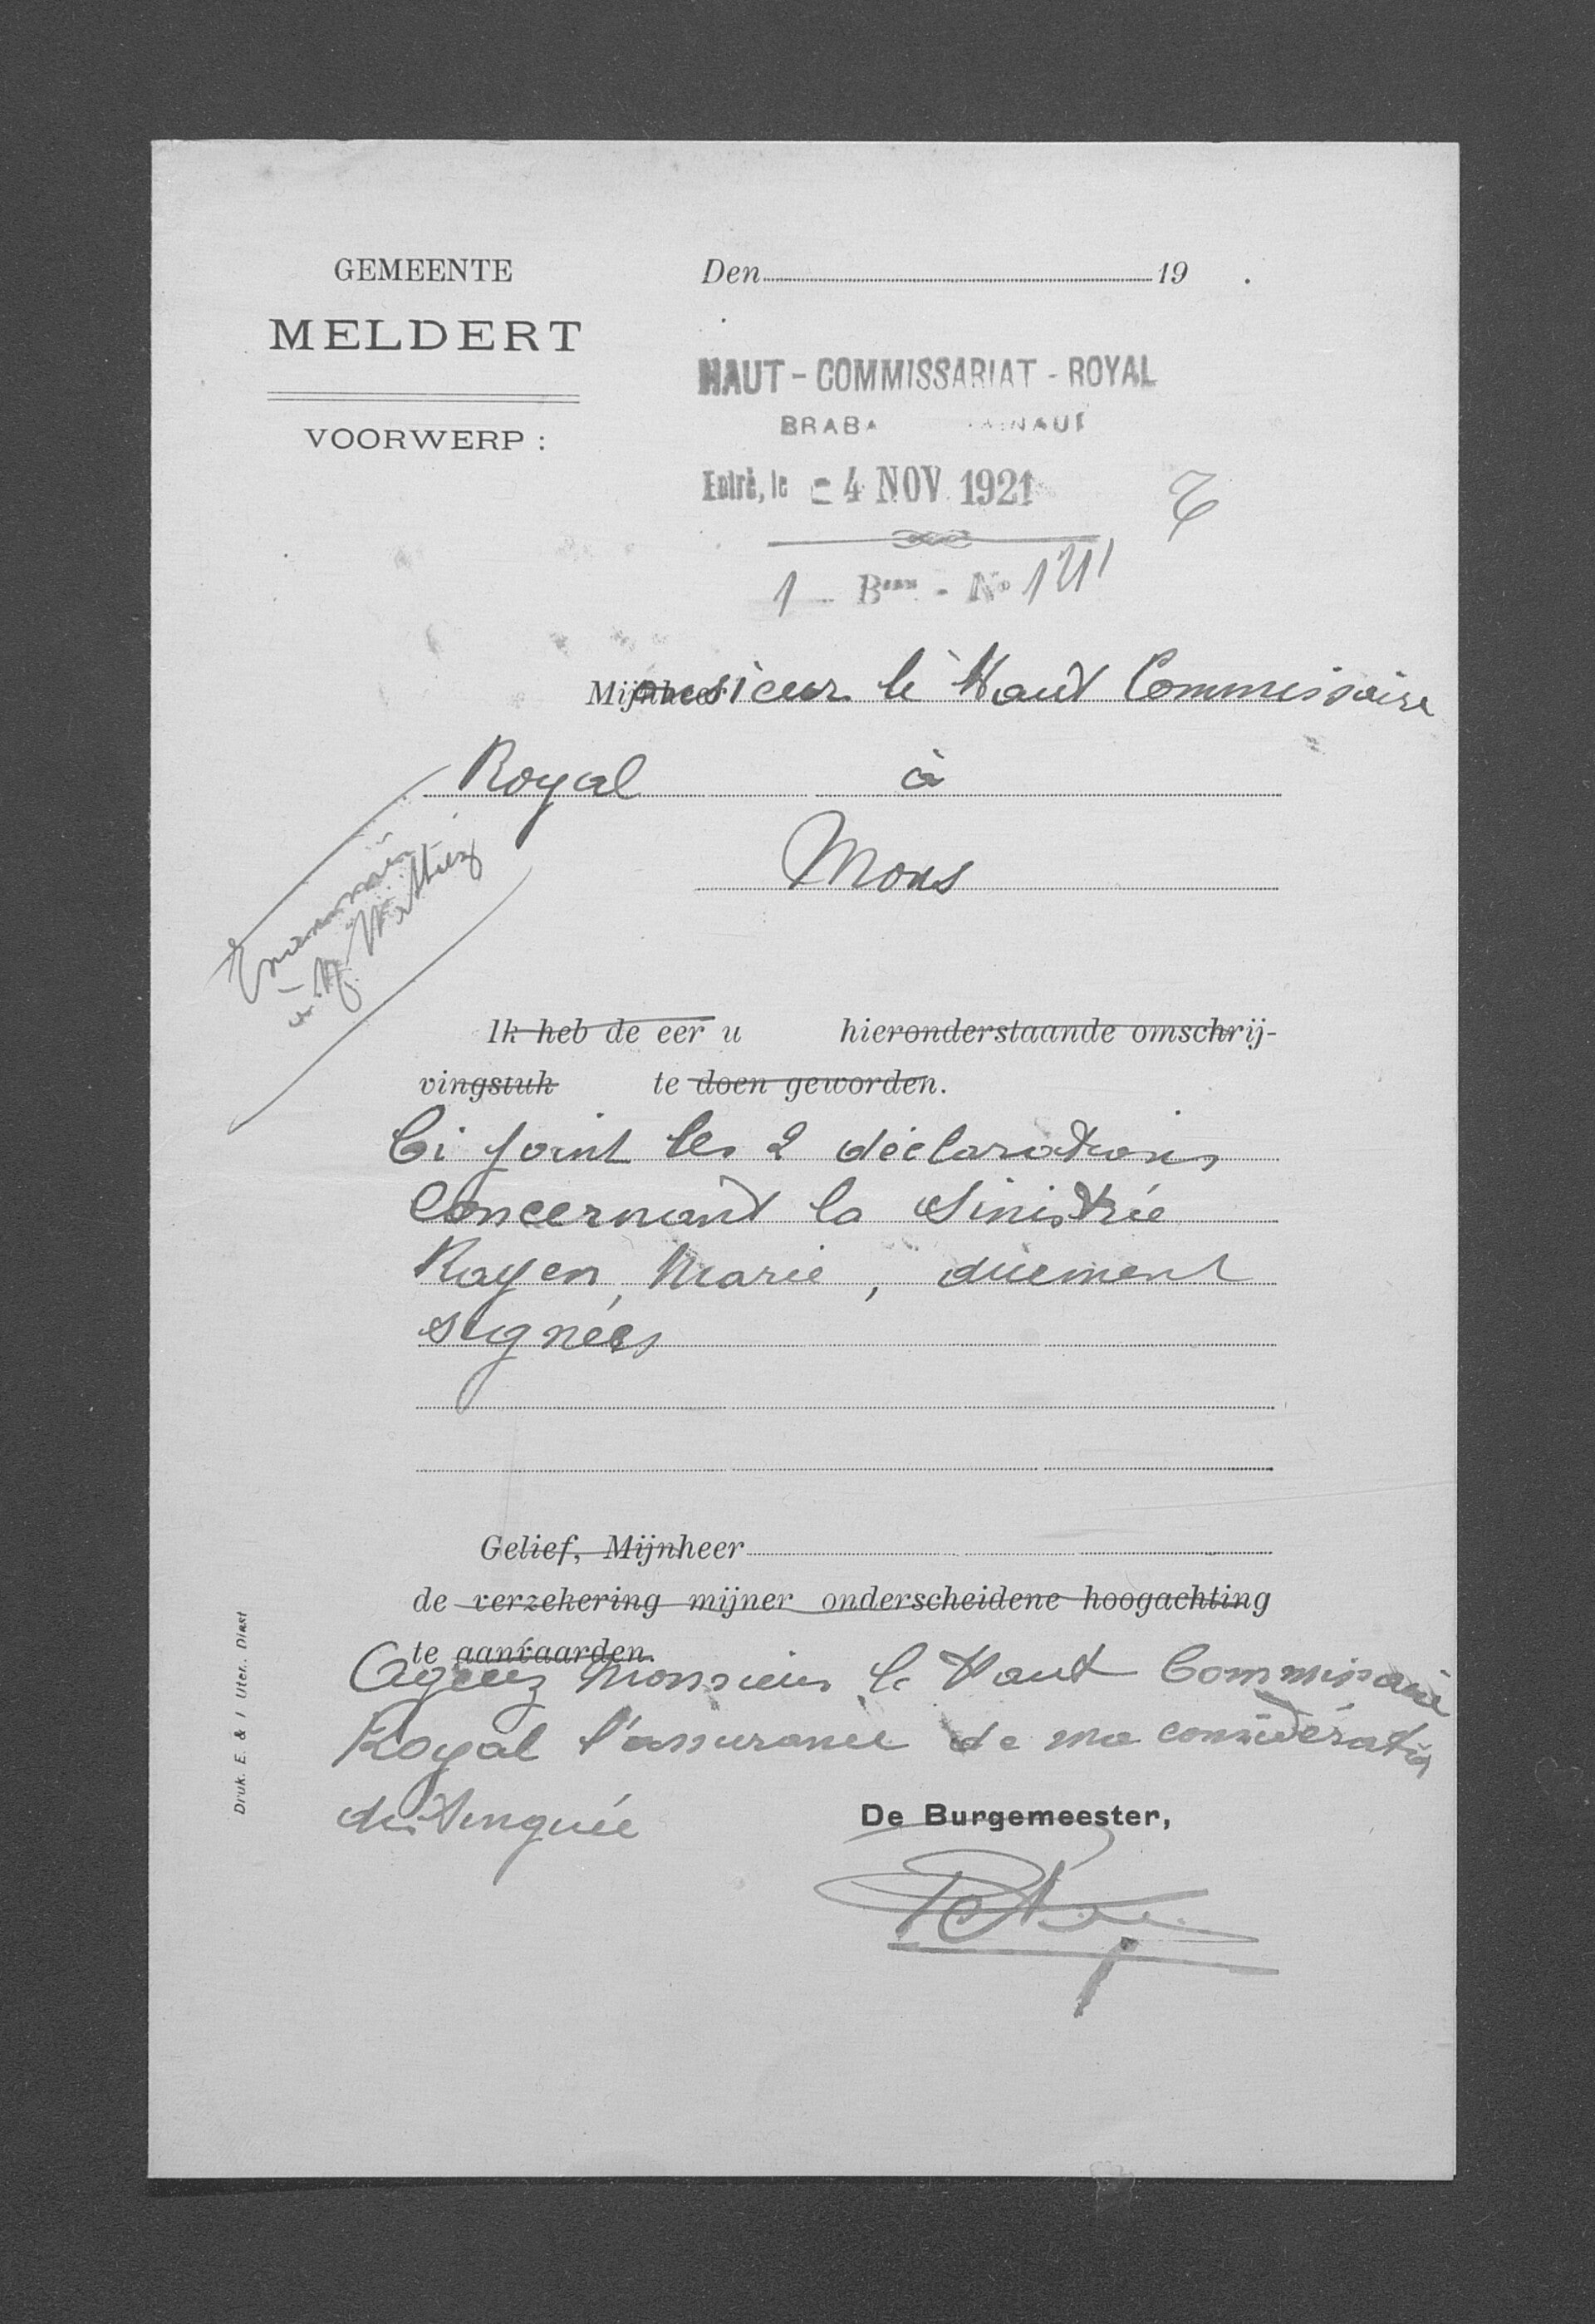 GEMEENTE
MELDERT
VOORWERP :
Den 19 .
HAUT - COMMISSARIAT - ROYAL
BRABA AINAUT
Entré, le - 4 NOV. 1921
1 - Beau - No
Monsieur le Haut Commissaire
Royal à
Mons
Ik heb de eer u hieronderstaande omschrij-
vingstuk te doen geworden.
Ci joint les 2 déclarations
Concernant la Sinistrée
Rayen, Marie, duement
signées
Gelief, Mijnheer
de verzekering mijner onderscheidene hoogachting
te aanvaarden.
Agréez Monsieur le Haut Commissaire
Royal l'assurance de ma considération
distinguée
De Burgemeester,
Druk. E. & I Uter.. Diest